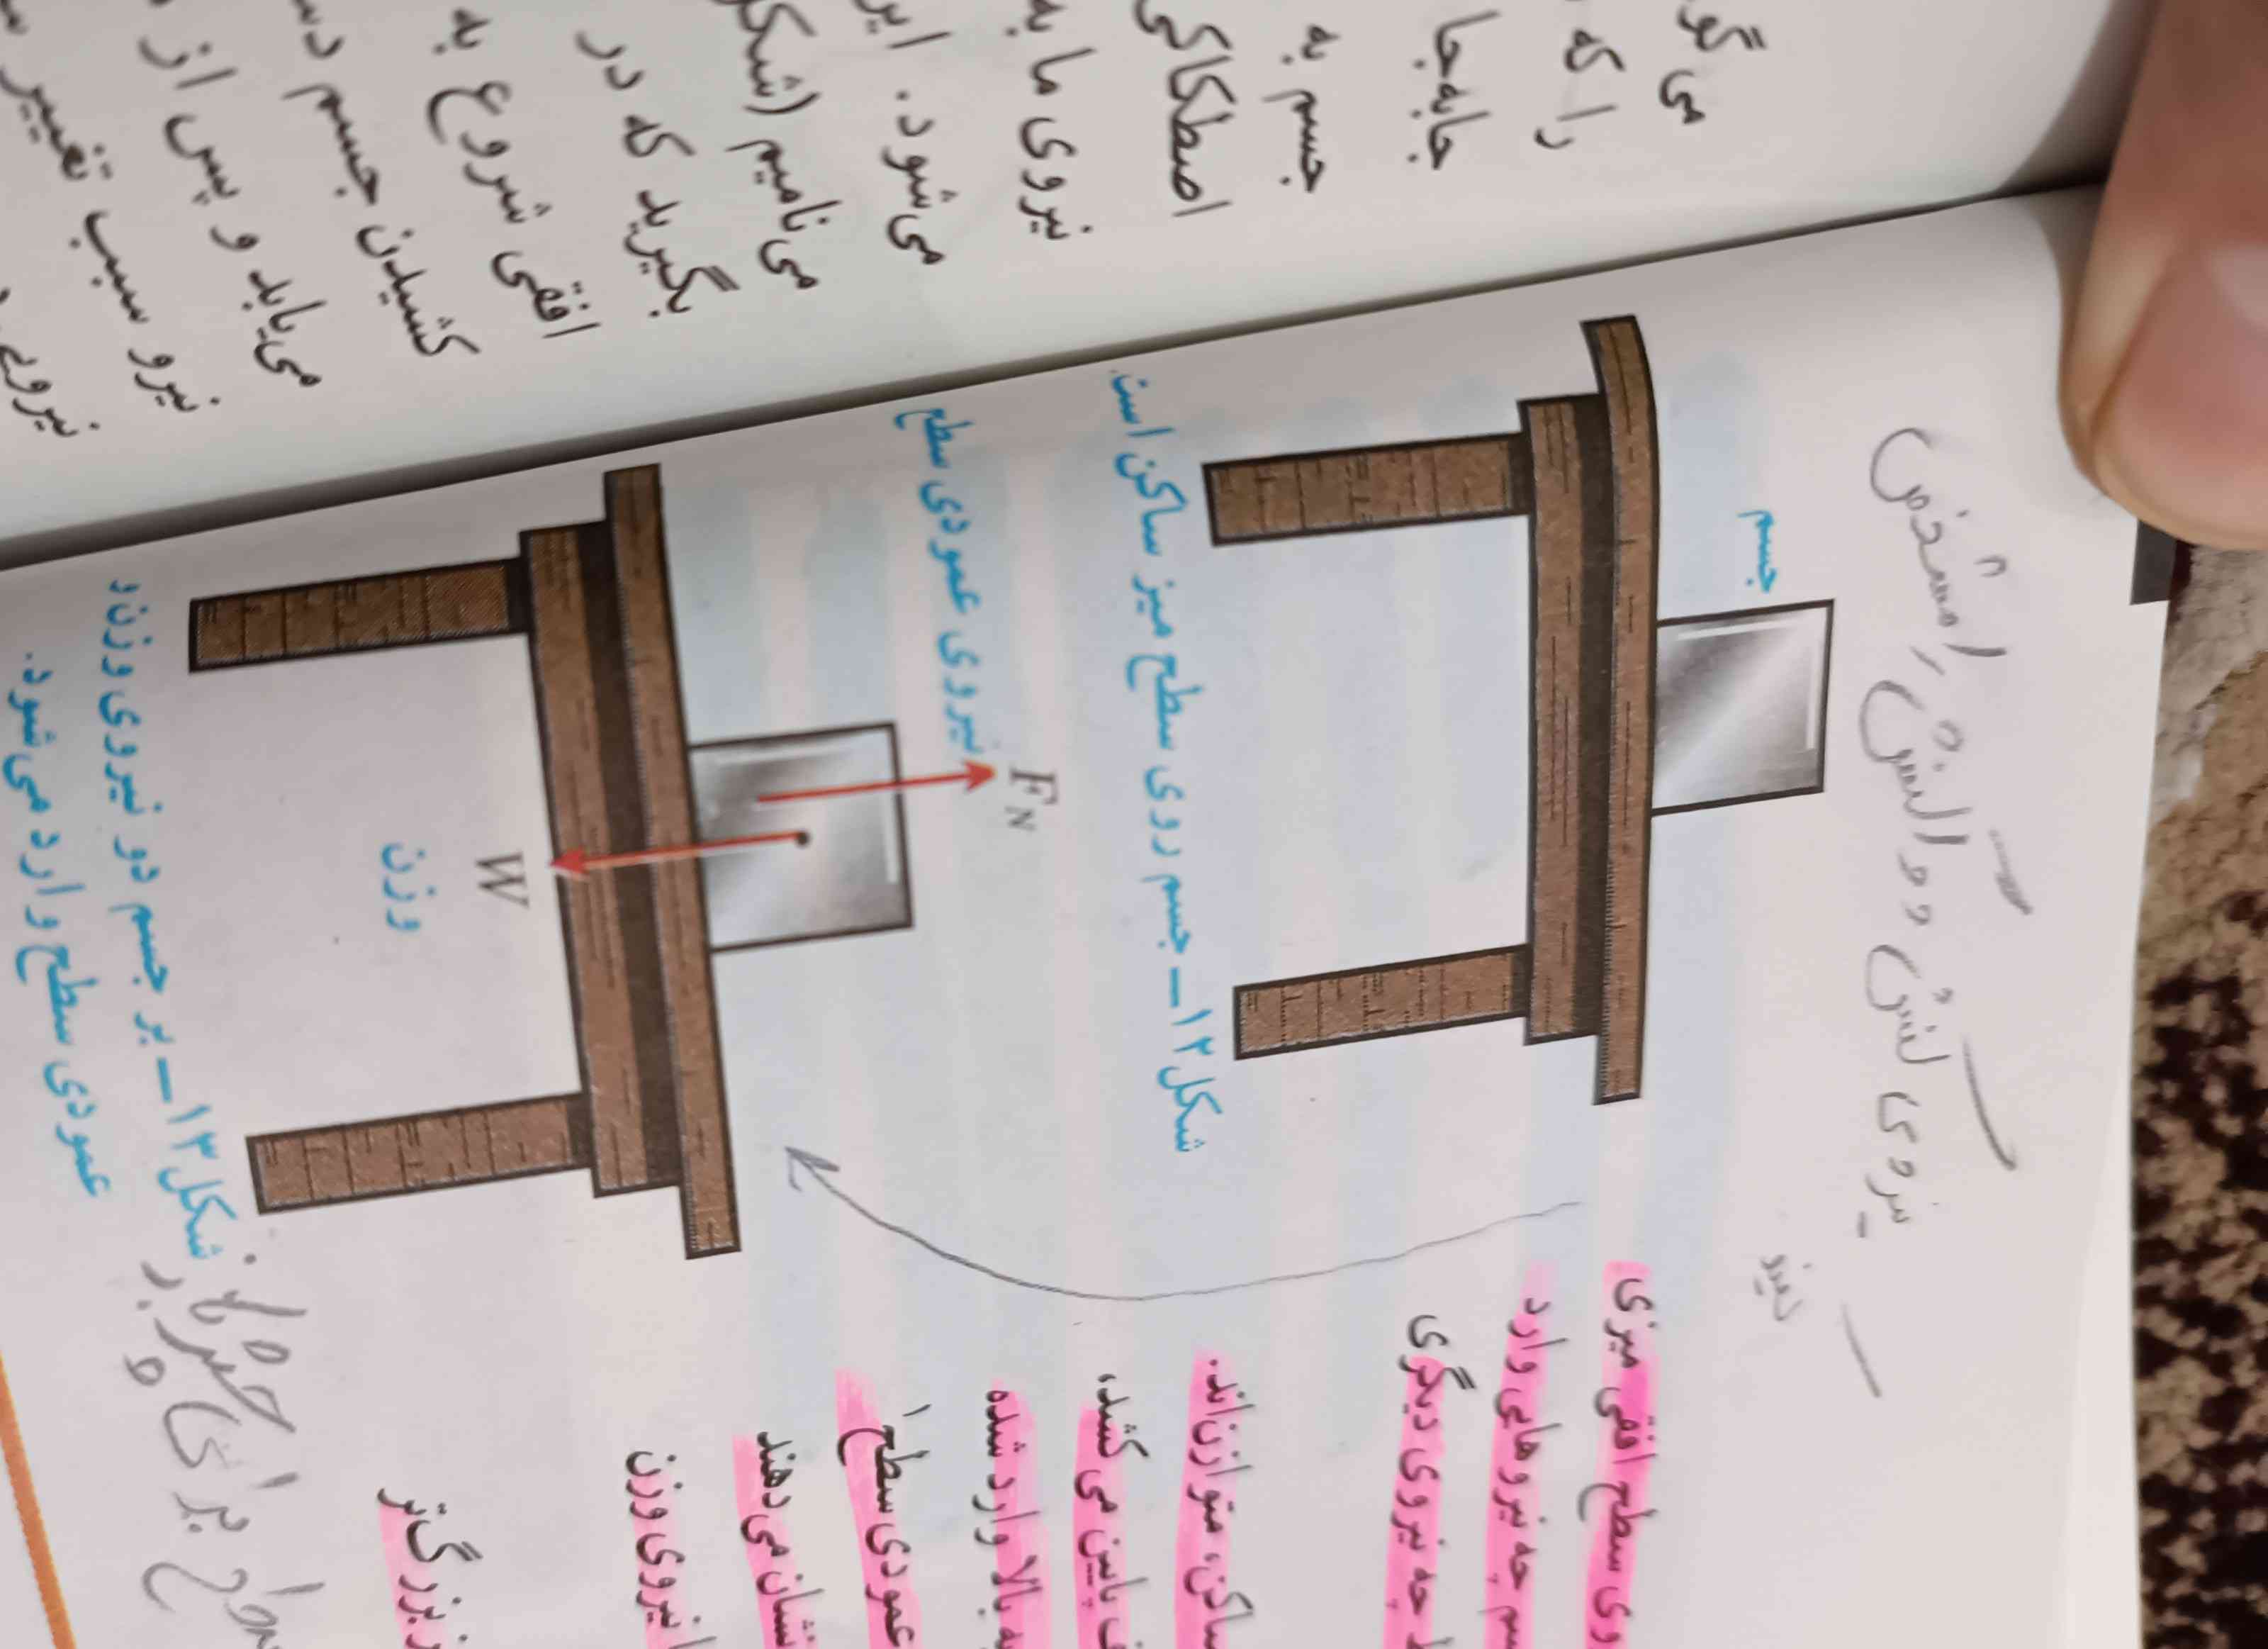 می‌گو
را که
جابه‌جا
جسم به
اصطکاکی
نیروی ما به
می‌شود. ایر
می‌نامیم (شکل
بگیرید که در
افقی شروع به
کشیدن جسم دس
می‌یابد و پس از
نیرو سبب تغییر س
نیرویی
نیروی کنش و واکنش را مشخص
کنید
جسم
شکل ۱۲ــ جسم روی سطح میز ساکن است.
نیروی عمودی سطح
F_N
W
وزن
شکل ۱۳ــ بر جسم دو نیروی وزن و
عمودی سطح وارد می‌شود.
وی سطح افقی میزی
سم چه نیروهایی وارد
چه نیروی دیگری
ساکن، متوازن‌اند.
ف پایین می‌کشد،
به بالا وارد شده
عمودی سطح۱
نشان می‌دهند
نیروی وزن
بزرگ‌تر
سطح برای